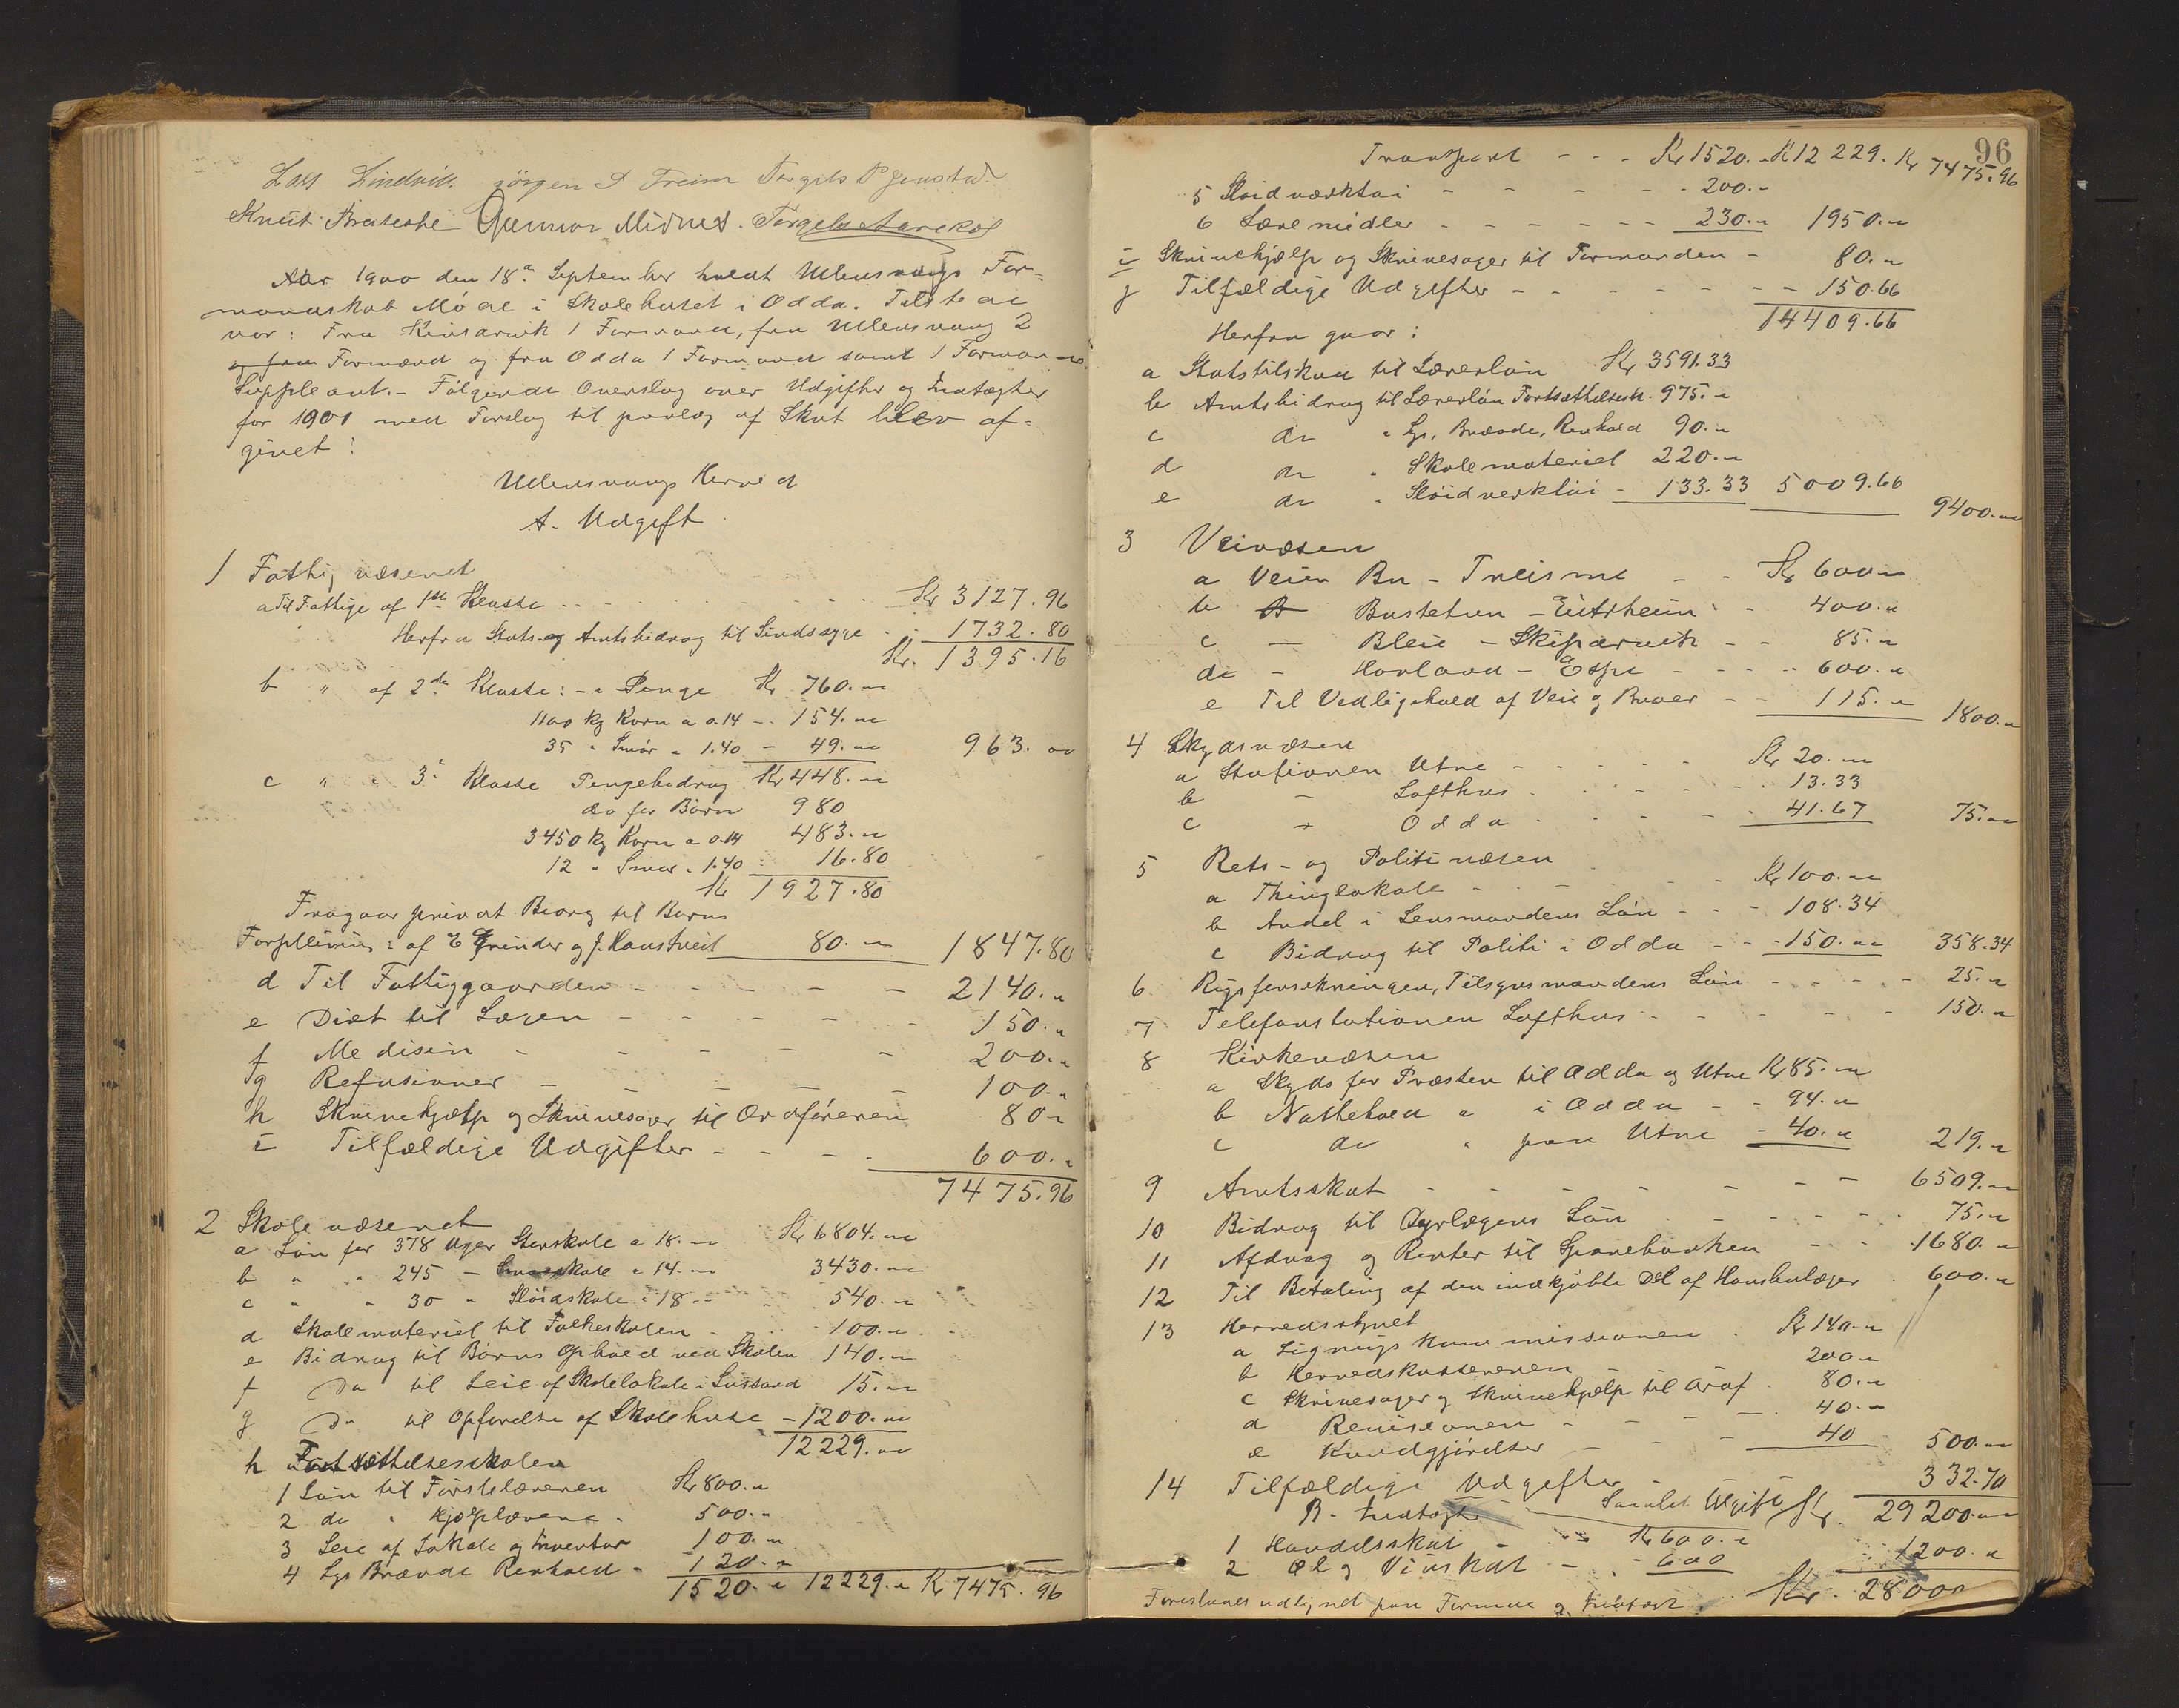 Lars Lindvik. Jörgen P Freim Torgils
Knut Gunnar Midnes. Torgels Aarekol
Aar 1900 den 18de September holdt Ullensvangs For-
mandskab Möde i Skolehuset i Odda. Tilstede
var: Fra Kinsarvik 1 Formand, fra Ullensvang 2
og fra Formænd og fra Odda 1 Formand samt 1 Formands
Suppleant. - Fölgende Overslag over Udgifter og Indtægter
for 1901 med Forslag til paalæg af Skat blev af-
givet:
Ullensvangs Herred
A. Udgift
1 Fattigvæsenet
a Til Fattige af 1ste Klasse - - - Kr 3127.96
Herfra Stats- og Amtsbidrag til Sindssyge - - 1732.80
Kr. 1395.16
b " af 2den Klasse: - i Penge Kr 760.00
1100 kg Korn a 0.14 - 154.00
35 " Smör " 1.40 - 49.00 963.00
c " " 3die Klasse Pengebidrag Kr 448.00
do for Börn 980
3450 kg Korn a 0.14 483.00
12 " Smör " 1.40 16.80
Kr 1927.80
Fragaar privat Bidrag til Barns
Forpleining: af E Grinder og J. Haustveit 80.00 1847.80
d Til Fattiggaarden - - - - - 2140.00
e Diæt til Lægen - - - - - 150.00
f Medisin - - - - - 200.00
g Refusioner - - - - - 100.00
h Skrivehjælp og Skrivesager til Ordföreren 80.00
i Tilfældige Udgifter - - - - 600.00
7475.96
2 Skolevæsenet
a Lön for 378 Uger Storskole a 18.00 Kr 6804.00
b " " 245 - Smaaskole a 14.00 3430.00
c " " 30 " Slöidskole a 18 - 540.00
d Skolemateriel til Folkeskolen - - 100.00
e Bidrag til Börns Ophold ved Skolen 140.00
f Do til Leie af Skolelokale i 15.00
g Do til Opförelse af Skolehuse - 1200.00
12229.00
h Fortsættelsesskolen
1 Lön til Förstelæreren Kr 800.00
2 do " Hjælpelærere - 500.00
3 Leie af Lokale og Inventar 100.00
4 Lys Brænde Renhold - 120.00
1520.00 12229.00 Kr 7475.96
96
Transport - - - Kr 1520.00 Kr 12229. Kr 7475.96
5 Slöidværktöi - - - - - 200.00
6 Læremidler - - - - - - 230.00 1950.00
i Skrivehjælp og Skrivesager til Formanden - 80.00
j Tilfældige Udgifter - - - - - - - - 150.66
14409.66
Herfra gaar:
a Statstilskud til Lærerlön Kr 3591.33
b Amtsbidrag til Lærerlön Fortsættelsessk. 975.00
c do " Lys, Brænde, Renhold 90.00
d do " Skolemateriel 220.00
e do " Slöidverktöi - 133.33 5009.66
9400.00
3 Veivæsen
a Veien Bu - Treisme - - Kr 600.00
b B Bustetun - Eitrheim - - 400.00
c — Bleie - Skiparvik - - 85.00
d - Hovland - Espe - - - - 600.00
e Til Vedligehold af Veie og Broer - - 115.00 1800.00
4 Skydsvæsen
a Stationen Utne - - - - - Kr 20.00
b — Lofthus - - - - - 13.33
c — Odda - - - - - 41.67 75.00
5 Rets- og Politivæsen
a Thinglokale - - - - - Kr 100.00
b Andel i Lensmandens Lön - - - 108.34
c Bidrag til Politi i Odda - - - 150.00 358.34
6. Rigsforsikringen, Tilsynsmandens Lön - - - - - 25.00
7 Telefonstationen Lofthus - - - - - - 150.00
8 Kirkevæsen
a Skyds for Præsten til Odda og Utne Kr 85.00
b Nattehold " i Odda - - 94.00
c do " paa Utne - 40.00 219.00
9 Amtsskat - - - - - - - - 6509.00
10 Bidrag til Dyrlægens Lön - - - - - - 75.00
11 Afdrag og Renter til Sparebanken - - - 1680.00
12 Til Betaling af den indkjöbte Del af 600.00
13 Herredsstyret
a Ligningskommissionen Kr 140.00
b Herredskassereren - 200.00
c Skrivesager og Skrivehjælp til Ordf. 80.00
d Revisionen - - - - 40.00
e Kundgjörelser - - - 40 500.00
14 Tilfældige Udgifter - 332.70
B. Indtægt Samlet Udgift Kr. 29200.00
1 Handelsskat - - - Kr 600.00
2 Öl og Vinskat - - - 600 1200.00
Foreslaaes udlignet paa Formue og Indtægt. Kr. 28000